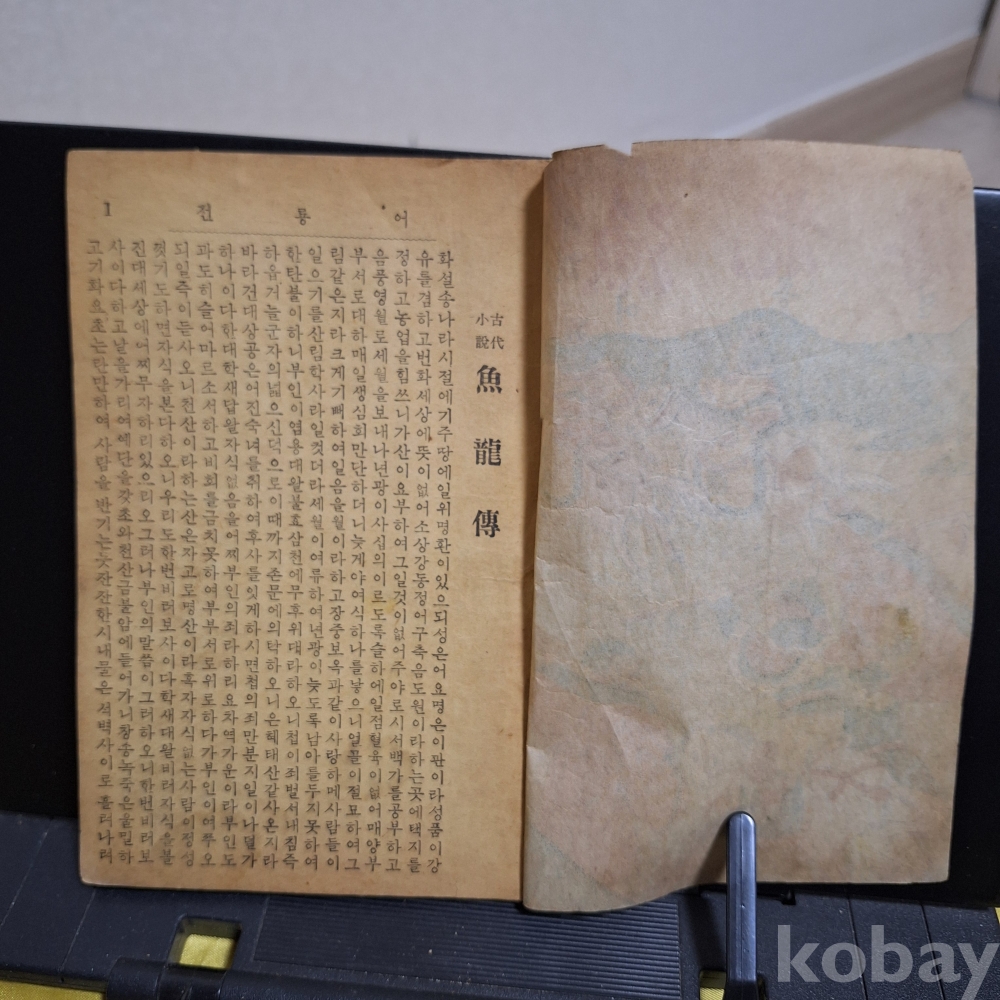 어룡전
1
古代
小說
魚龍傳
화설송나라시절에기주땅에일위명환이있으되성은어요명은이판이라성품이강
유를겸하고번화세상에뜻이없어소상강동정어구축음도원이라하는곳에택지를
정하고농업을힘쓰니가산이요부하여그일것이없어주야로시서백가를공부하고
음풍영월로세월을보내나년광이사십의이르도록슬하에일점혈육이없어매양부
부서로대하매일생심회만단하더니늦게야여식하나를낳으니얼골이절묘하여그
림같은지라크게기뻐하여일음을월이라하고장중보옥과같이사랑하메사람들이
일으기를산림학사라일컷더라세월이여류하여년광이늦도록남아를두지못하여
한탄불이하니부인이염용대왈불효삼천에무후위대라하오니첩이죄벌서내침즉
하옵거늘군자의넓으신덕으로이때까지존문에의탁하오니은혜태산같사온지라
바라건대상공은어진숙녀를취하여후사를잇게하시면첩의죄만분지일이나덜가
하나이다한대학새답왈자식없음을어찌부인의죄라하리요차역가운이라부인도
과도히슬어마르소서하고비회를금치못하여부부서로위로하다가부인이여쭈오
되일즉이듣사오니천산이라하는산은자고로명산이라혹자자식없는사람이정성
껏기도하면자식을본다하오니우리도한번비러보사이다학새대왈비러자식을볼
진대세상에어찌무자하리있으리오그러나부인의말씀이그러하오니한번비러보
사이다하고날을가리여예단을갖초와천산금불암에들어가니창송녹죽은울밀하
고기화요초는란만하여사람을반기는듯잔잔한시내물은석벽사이로흘러나려
kobay